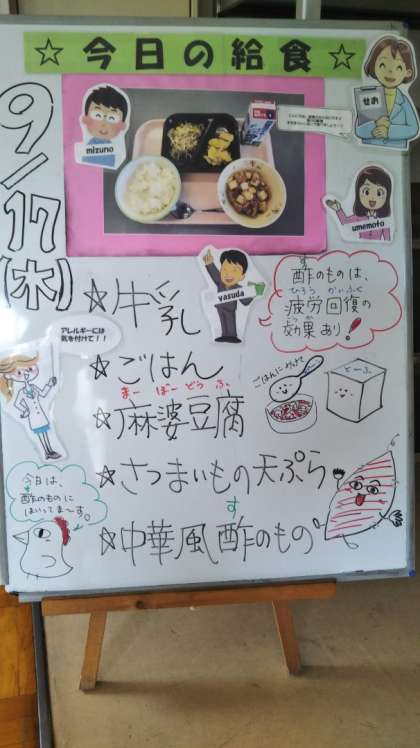 ☆今日の給食☆
せお
mizuno
9/17(木)
umemoto
yasuda
酢のものは、
す
疲労回復の
ひろう かいふく
効果あり!
こうか
アレルギーには
気を付けて!!
☆牛乳
☆ごはん
まーぼーどうふ
☆麻婆豆腐
ごはんにかけて
とーふ
☆さつまいもの天ぷら
す
☆中華風酢のもの
今日は、
酢のものに
はいってまーす。